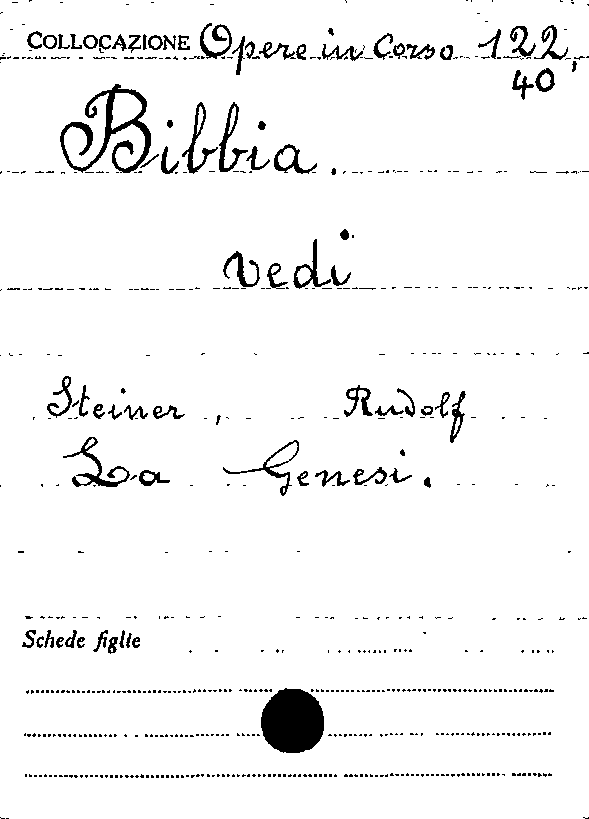 COLLOCAZIONE Opere in Corso 122,
40
Bibbia.
vedi
Steiner, Rudolf
La Genesi.
Schede figlie